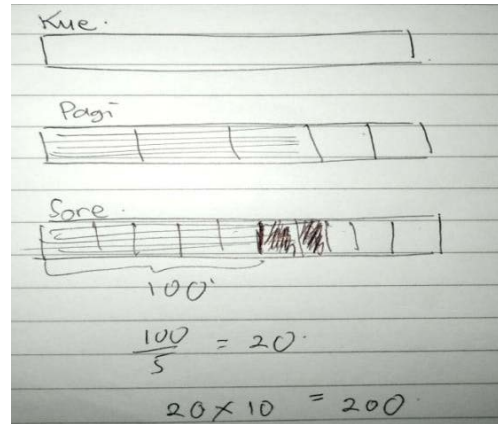 Kue.
Pagi
Sore.
100
100/5 = 20.
20 × 10 = 200